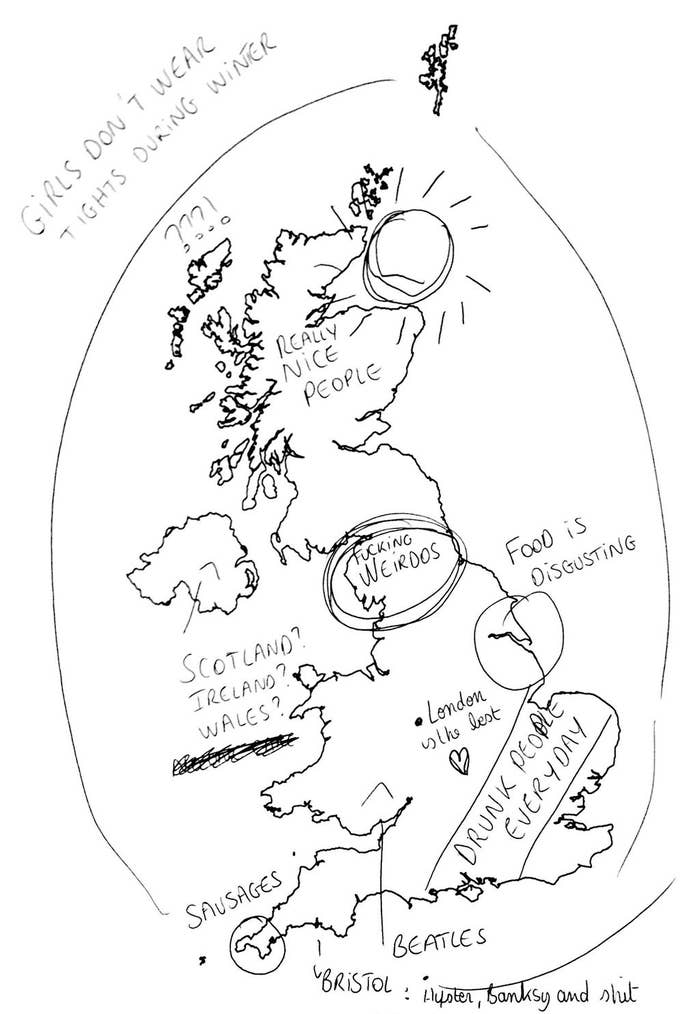 GIRLS DON'T WEAR
TIGHTS DURING WINTER
????!
REALLY
NICE
PEOPLE
FUCKING
WEIRDOS
FOOD IS
DISGUSTING
SCOTLAND?
IRELAND?
WALES?
London
is the best
DRUNK PEOPLE
EVERYDAY
SAUSAGES
BEATLES
BRISTOL : Hypster, Banksy and shit